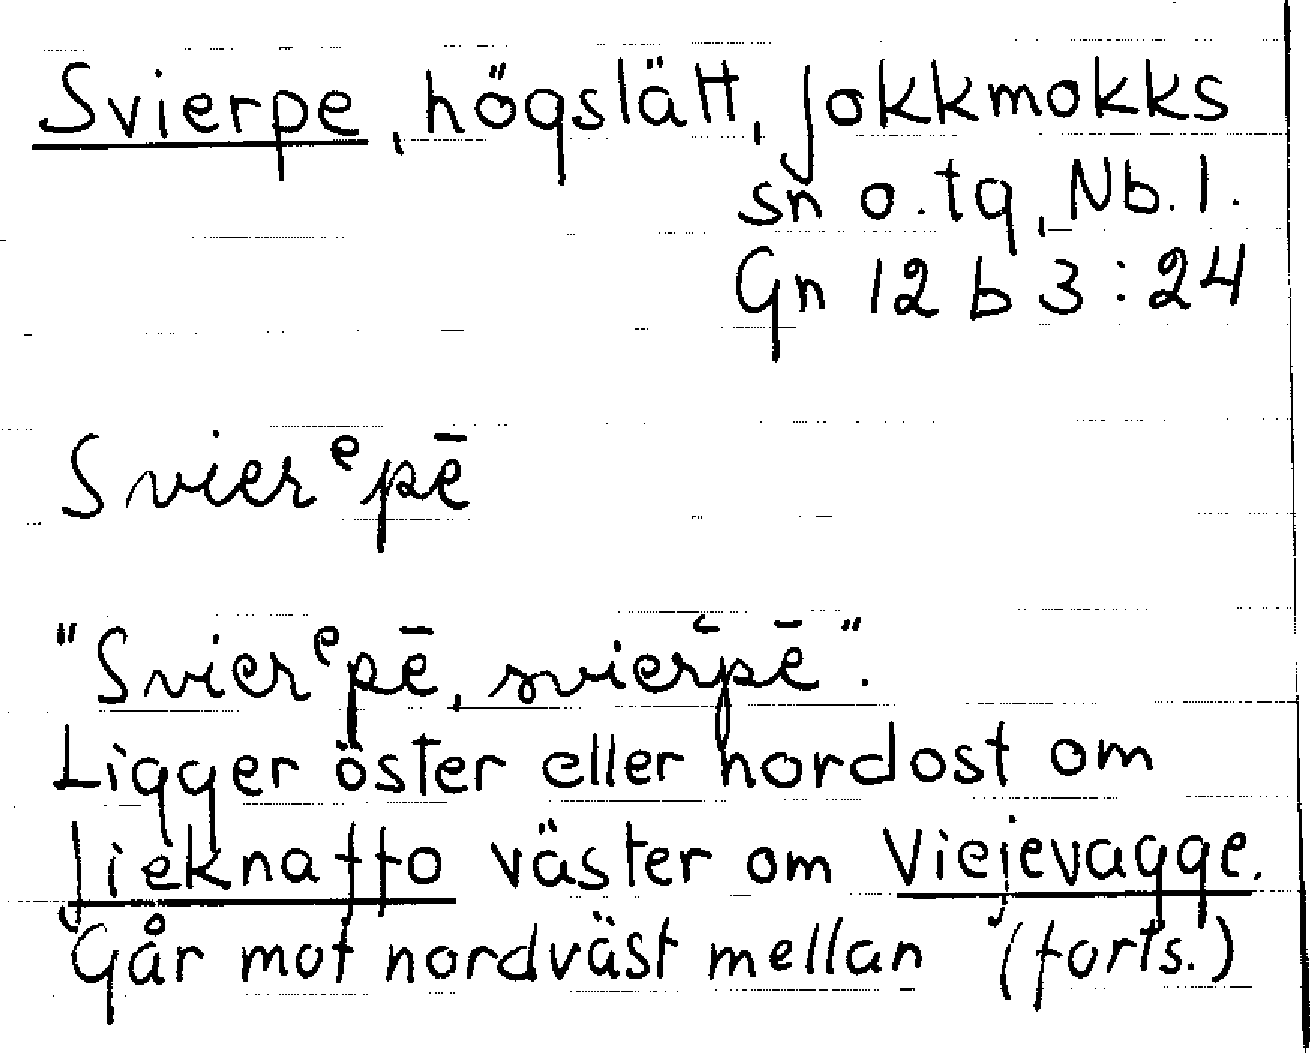 Svierpe, högslätt, Jokkmokks
sn o. tg, Nb. l.
Gn 12 b 3:24
Svierᵉpē
"Svierᵉpē, svierp̆ē".
Ligger öster eller nordost om
Jieknaffo väster om Viejevagge.
Går mot nordväst mellan (forts.)